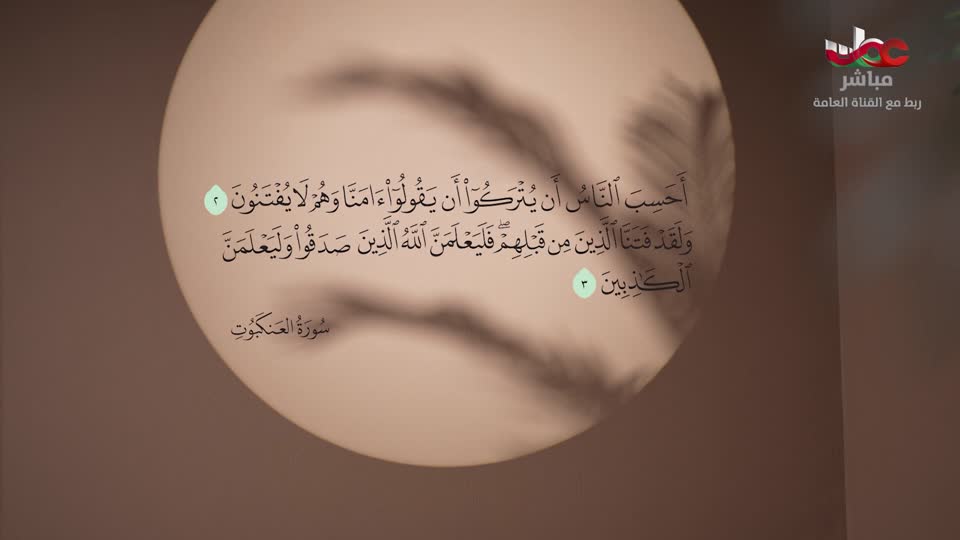 عمان
مباشر
ربط مع القناة العامة
أَحَسِبَ ٱلنَّاسُ أَن يُتْرَكُوٓا۟ أَن يَقُولُوٓا۟ ءَامَنَّا وَهُمْ لَا يُفْتَنُونَ ٢
وَلَقَدْ فَتَنَّا ٱلَّذِينَ مِن قَبْلِهِمْ ۖ فَلَيَعْلَمَنَّ ٱللَّهُ ٱلَّذِينَ صَدَقُوا۟ وَلَيَعْلَمَنَّ
ٱلْكَـٰذِبِينَ ٣
سُورَةُ العَنكَبُوتِ